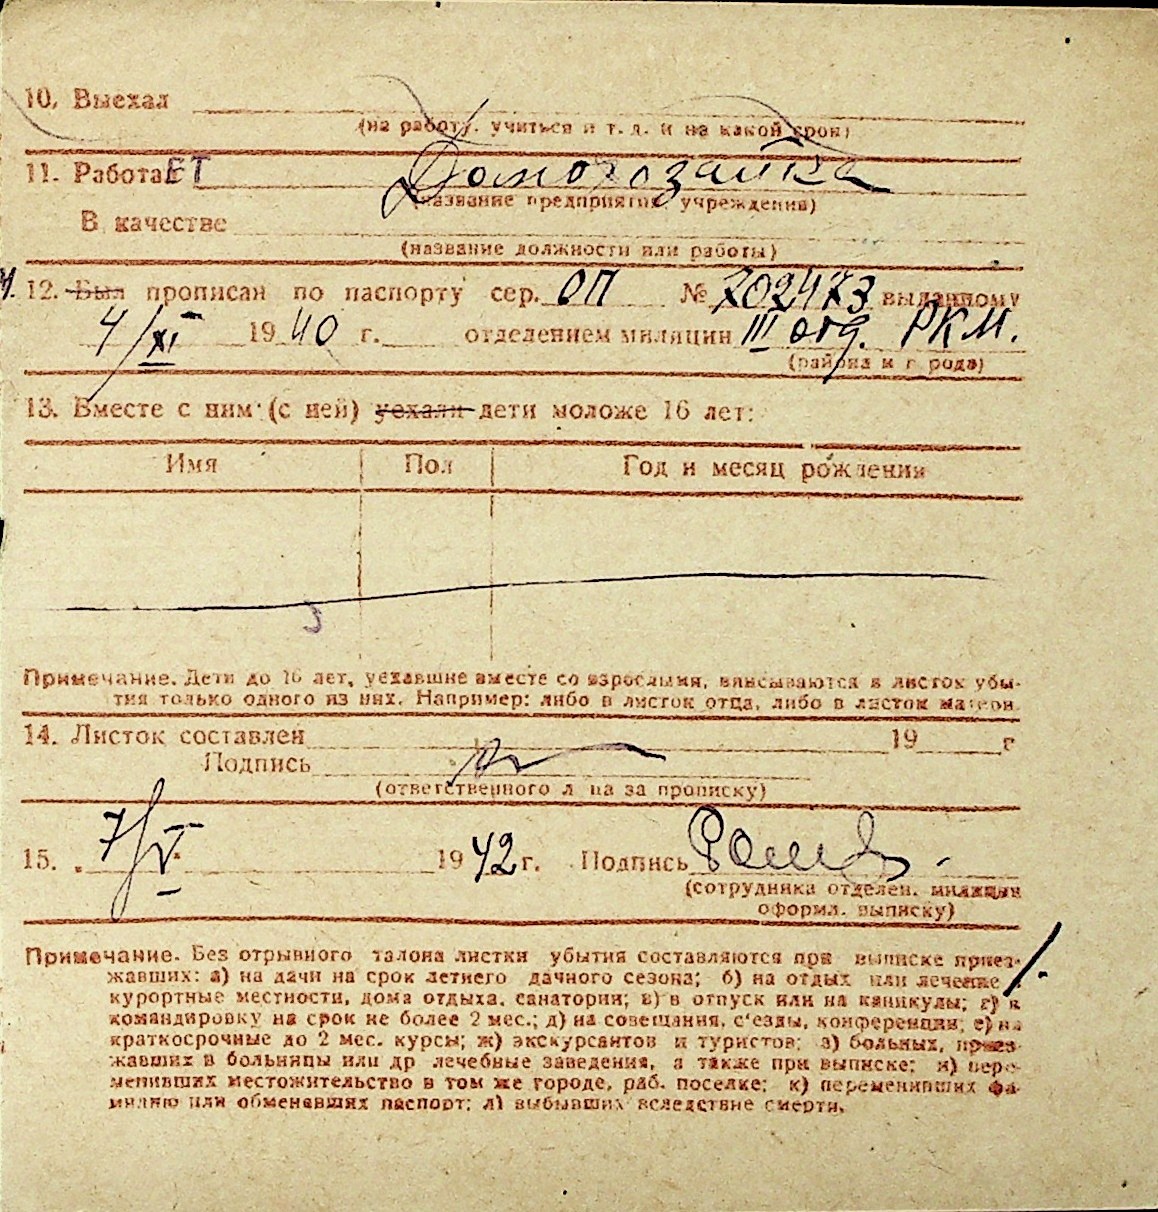 10. Выехал
(на работу, учиться и т. д. и на какой срок)
11. РаботаЕТ Домохозайка
(название предприятия, учреждения)
В качестве
(название должности или работы)
12. Был прописан по паспорту сер. ОП № 702473 выданному
4/XI 1940 г. отделением милиции III отд. РКМ.
(района и города)
13. Вместе с ним (с ней) уехали дети моложе 16 лет:
Имя Пол Год и месяц рождения
Примечание. Дети до 16 лет, уехавшие вместе со взрослыми, вписываются в листок убы-
тия только одного из них. Например: либо в листок отца, либо в листок матери.
14. Листок составлен 19 г
Подпись
(ответственного лица за прописку)
15. 7/V 1942 г. Подпись
(сотрудника отделен. милиции
оформл. выписку)
Примечание. Без отрывного талона листки убытия составляются при выписке приез-
жавших: а) на дачи на срок летнего дачного сезона; б) на отдых или лечение в
курортные местности, дома отдыха, санатории; в) в отпуск или на каникулы; г) в
командировку на срок не более 2 мес.; д) на совещания, с'езды, конференции; е) на
краткосрочные до 2 мес. курсы; ж) экскурсантов и туристов; з) больных, приез-
жавших в больницы или др лечебные заведения, а также при выписке; и) пере-
менивших местожительство в том же городе, раб. поселке; к) переменивших фа-
милию или обменявших паспорт; л) выбывших вследствие смерти.